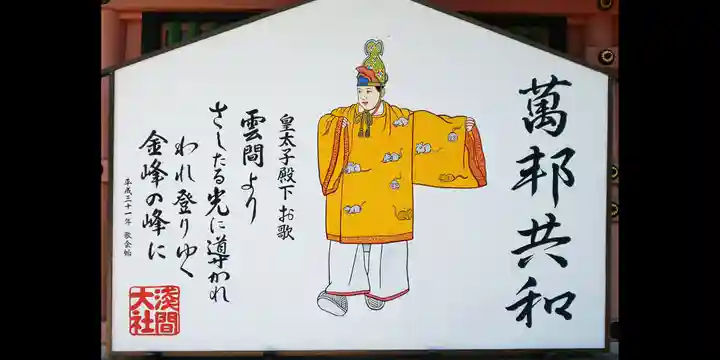 萬邦共和
皇太子殿下 お歌
雲間より
さしたる光に導かれ
われ登りゆく
金峰の峰に
平成三十一年 歌会始
浅間
大社